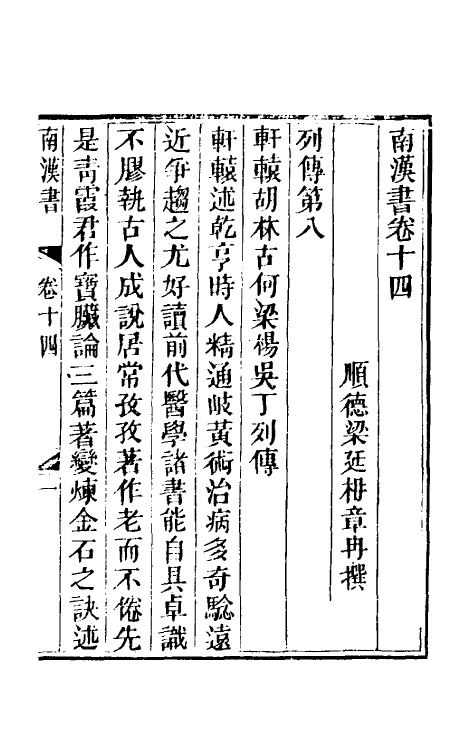 南漢書卷十四
順德梁廷枏章冉撰
列傳第八
軒轅胡林古何梁楊吳丁列傳
軒轅述乾亨時人精通岐黃術治病多奇驗遠
近爭趨之尤好讀前代醫學諸書能自具卓識
不膠執古人成說居常孜孜著作老而不倦先
是青霞君作寶臟論三篇著變煉金石之訣述
南漢書
卷十四
一